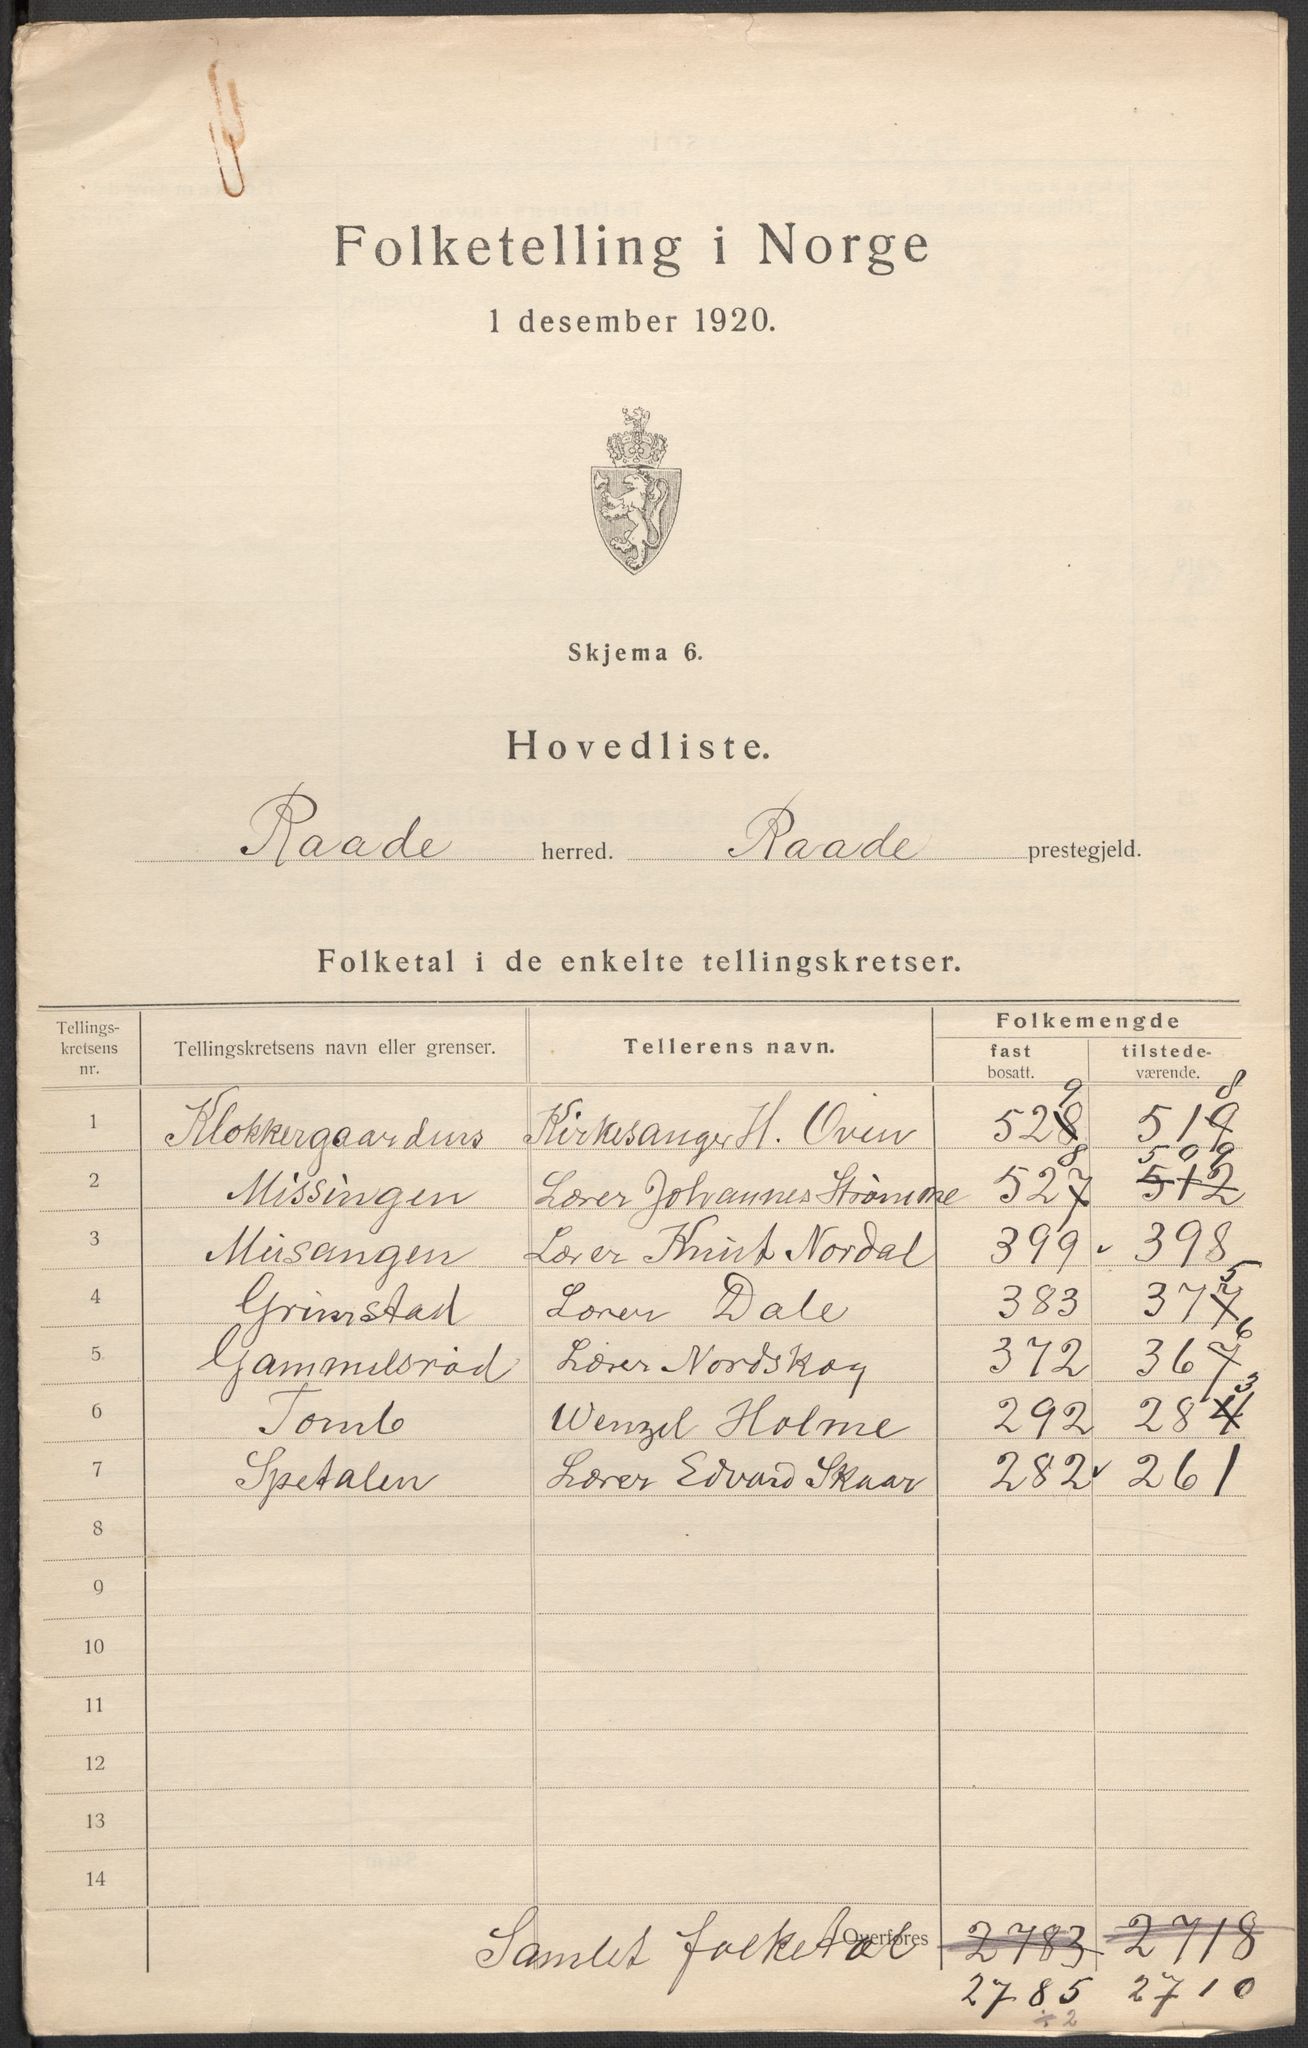 Folketelling i Norge
1 desember 1920.
Skjema 6.
Hovedliste.
Raade herred. Raade prestegjeld.
Folketal i de enkelte tellingskretser.
Tellings-
kretsens
nr.
Tellingskretsens navn eller grenser.
Tellerens navn.
Folkemengde
fast
bosatt.
tilstede-
værende.
9 8
1 Klokkergaardens Kirkesanger H. Oven 528 519
8 509
2 Missingen Lærer Johannes Strømme 527 512
3 Misangen Lærer Knut Nordal 399 398
5
4 Grimstad Lærer Dale 383 377
6
5 Gammelsrød Lærer Nordskog 372 367
3
6 Tomb Wenzel Holme 292 284
7 Spetalen Lærer Edvard Skaar 282 261
8
9
10
11
12
13
14
Samlet folketal Overføres 2783 2718
2785 2710
÷ 2